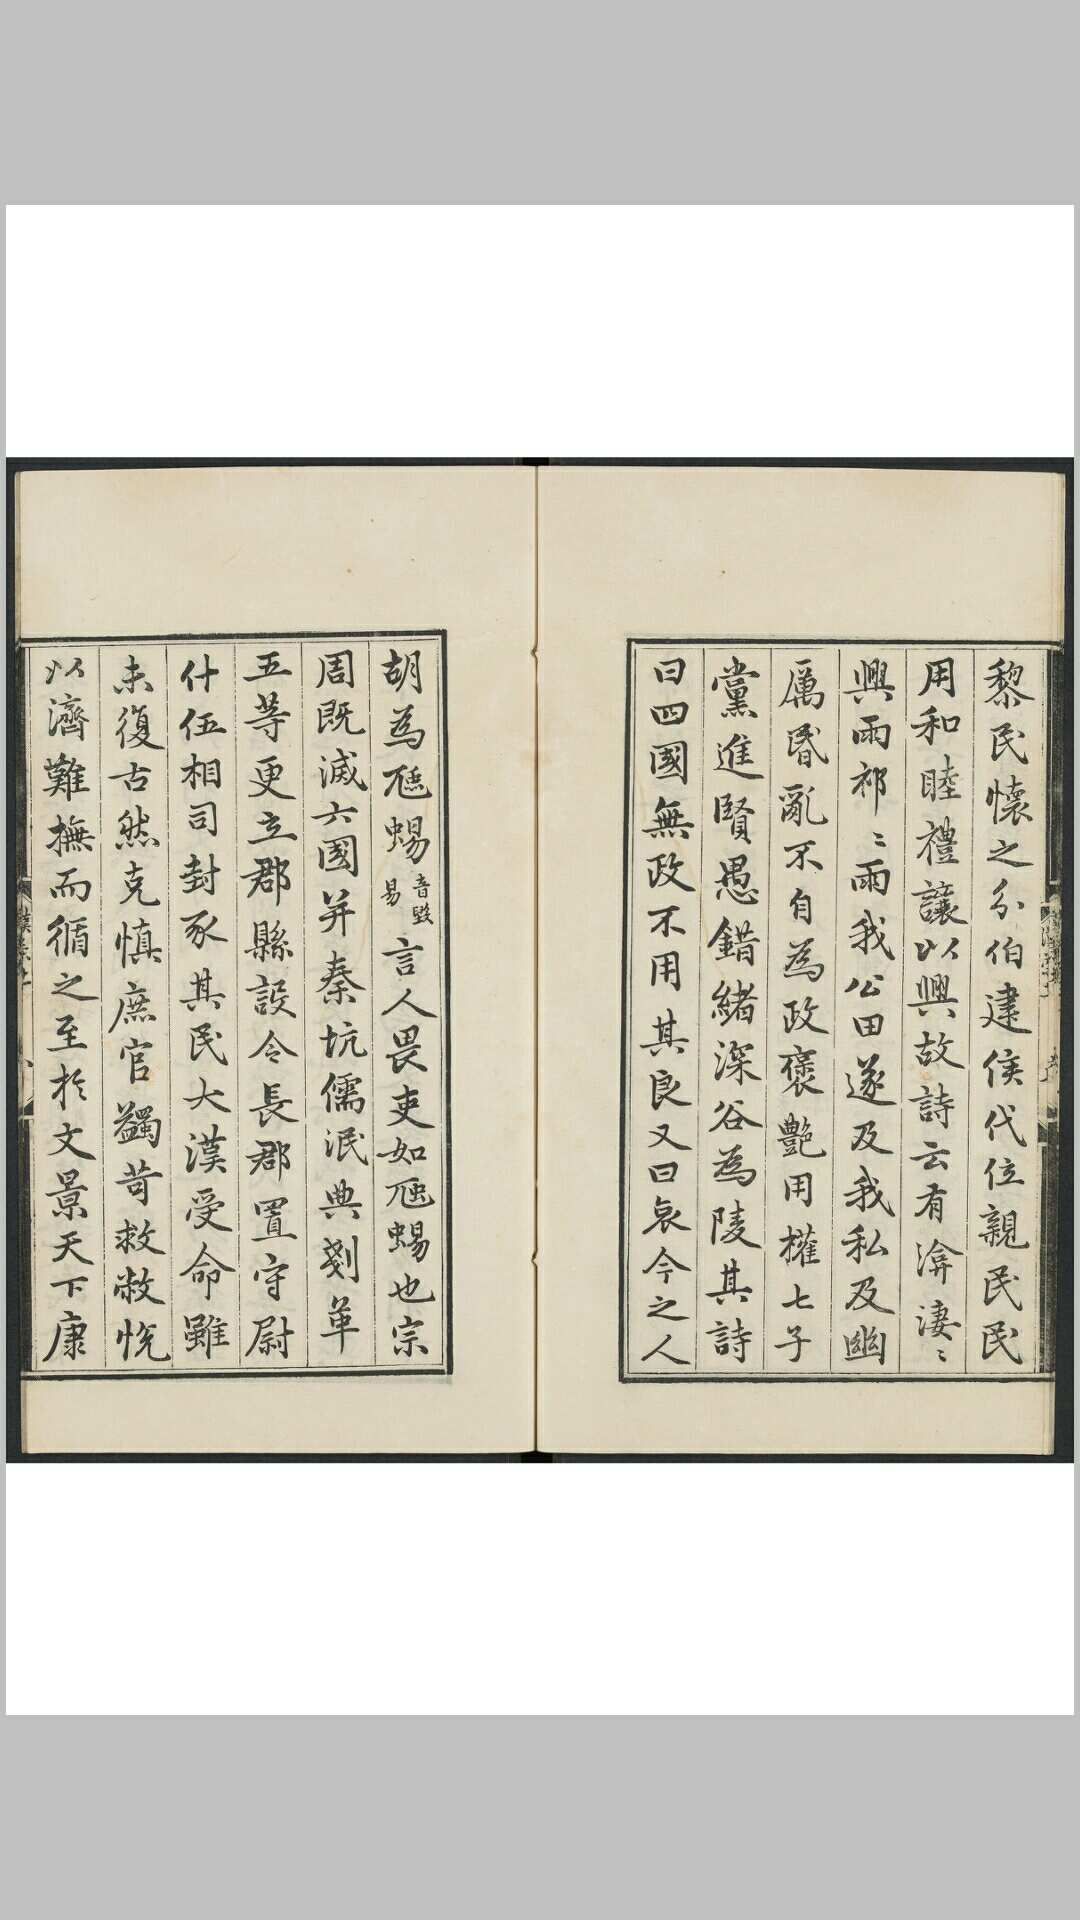 黎民懷之分伯建侯代位親民民
用和睦禮讓以興故詩云有渰淒〻
興雨祁〻雨我公田遂及我私及幽
厲昬亂不自為政褒艷用權七子
黨進賢愚錯緒深谷為陵其詩
曰四國無政不用其良又曰哀今之人
胡為虺蜴
音毀
易
言人畏吏如虺蜴也宗
周既滅六國并秦坑儒泯典剗革
五等更立郡縣設令長郡置守尉
什伍相司封豕其民大漢受命雖
未復古然克慎庶官蠲苛救敝悅
以濟難撫而循之至於文景天下康